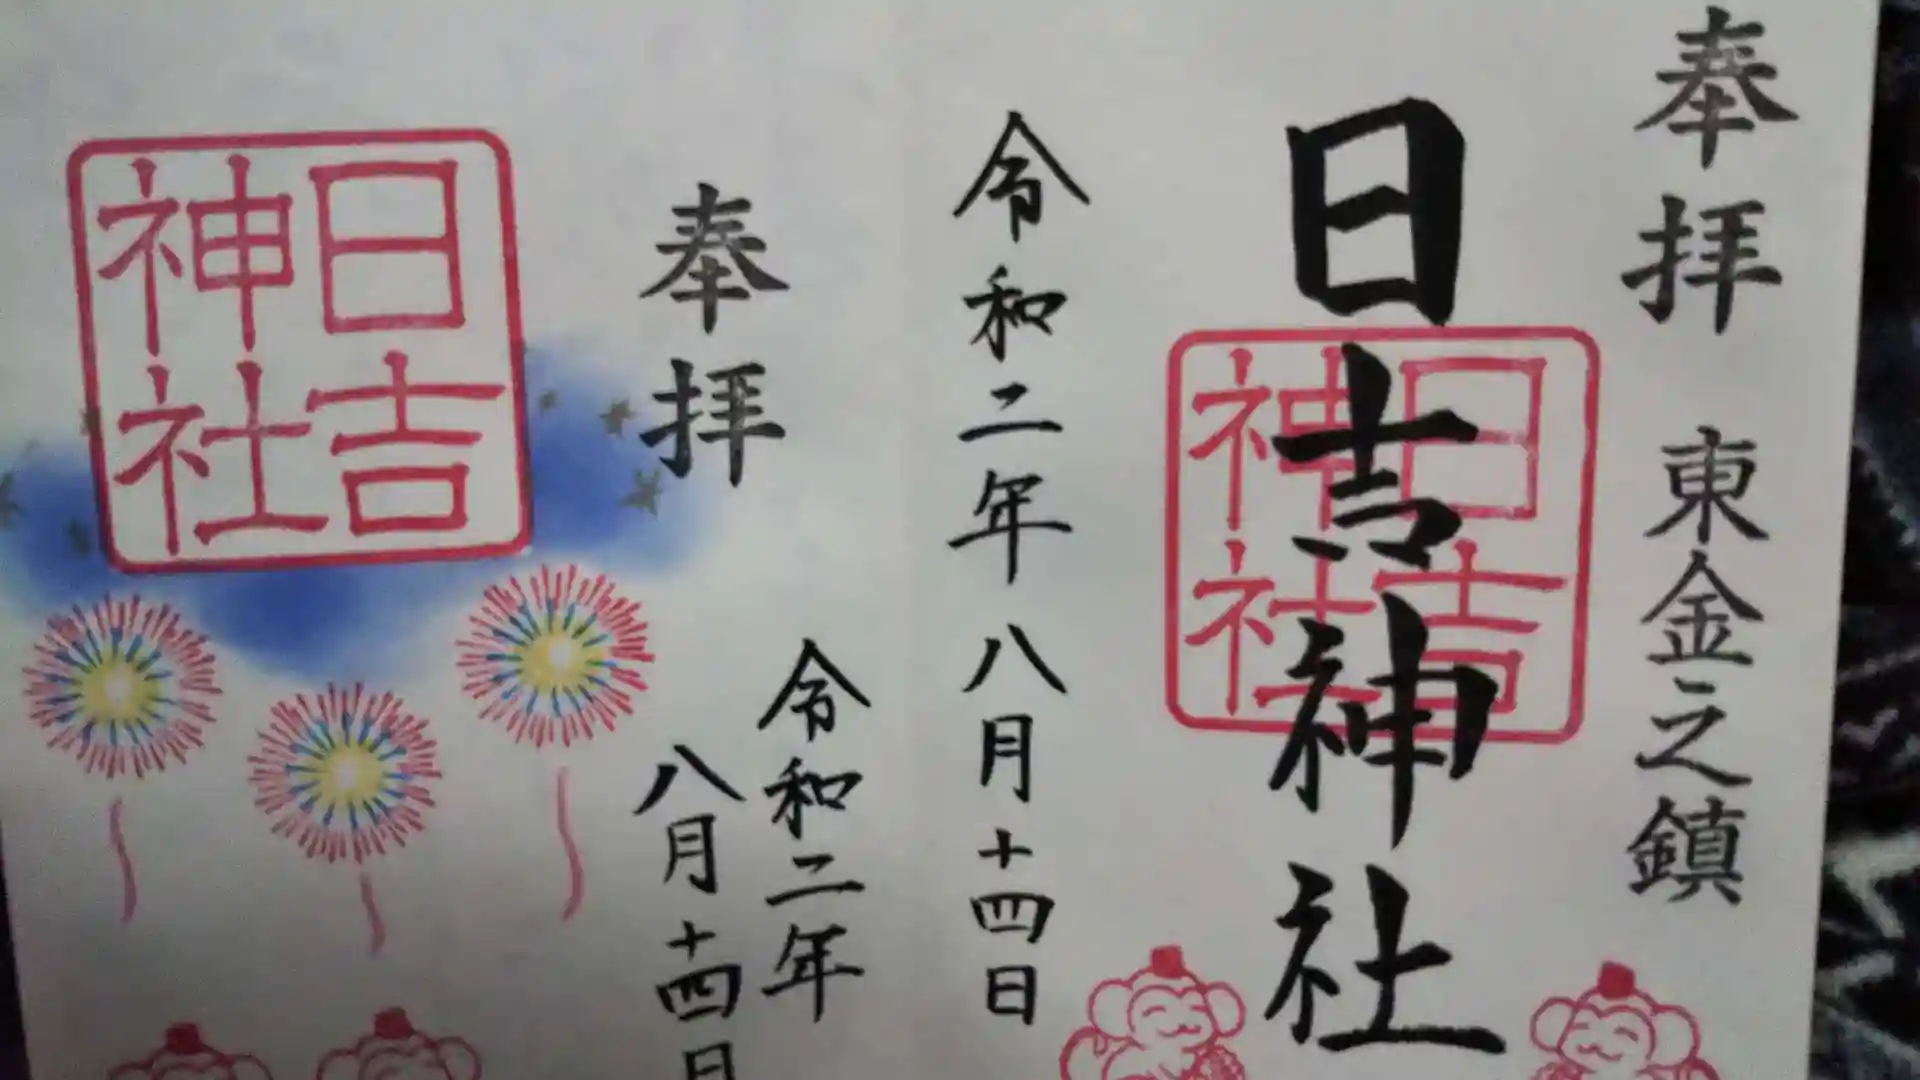 奉拝 東金之鎮
日吉神社
日吉
神社
令和二年八月十四日
奉拝
令和二年
八月十四日
日吉
神社